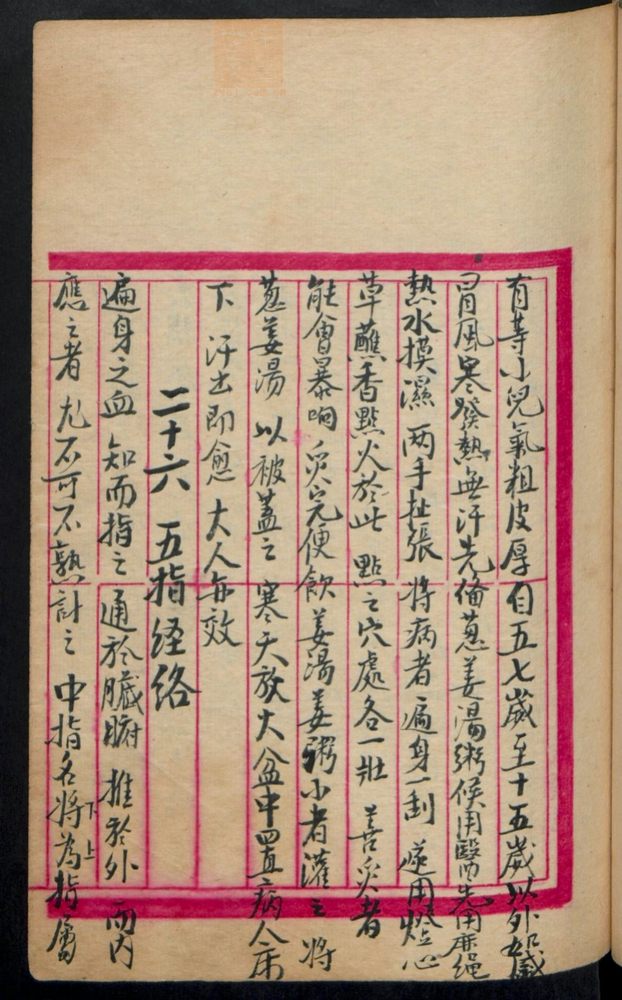 有等小兒氣粗皮厚自五七歲至十五歲以外如感
冒風寒發熱無汗先俻葱姜湯粥候用醫内先用麻绳
熱水摸濕 两手扯張 將病者遍身一刮 遂用燈心
草蘸香點火於此 點之穴處各一壯 善灸者
能會暴响 灸完便飲 姜湯姜粥小者灌之 將
葱姜湯 以被蓋之 寒天放火盆中置病人床
下 汗出即愈 大人亦效
二十六 五指经络
遍身之血 知而指之 通於臓腑 推於外 而内
應之者 尤不可不熟討之 中指名將為指屬
下上